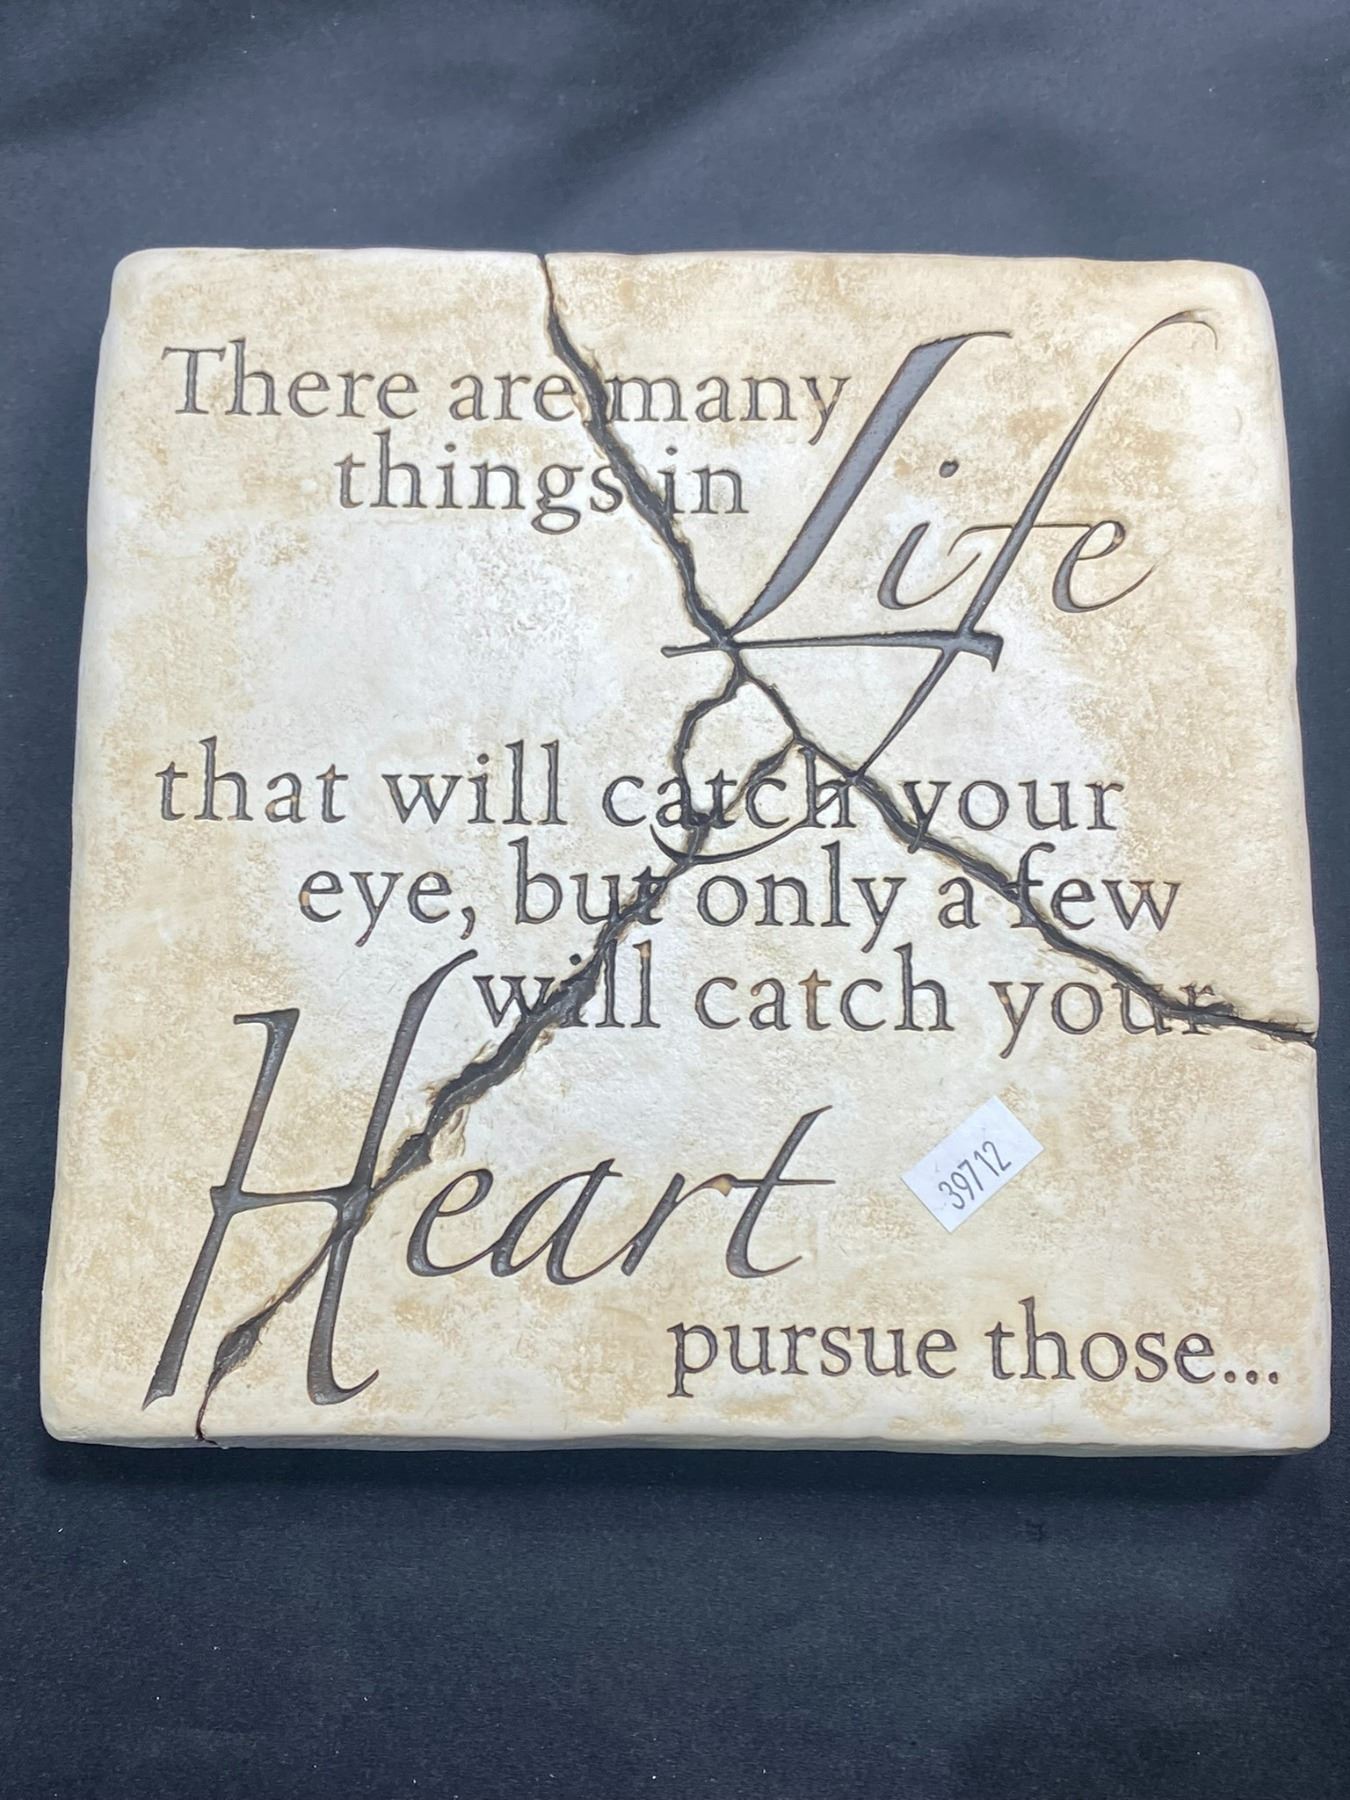 There are many Life
things in
that will catch your
eye, but only a few
will catch your
Heart
39712
pursue those...